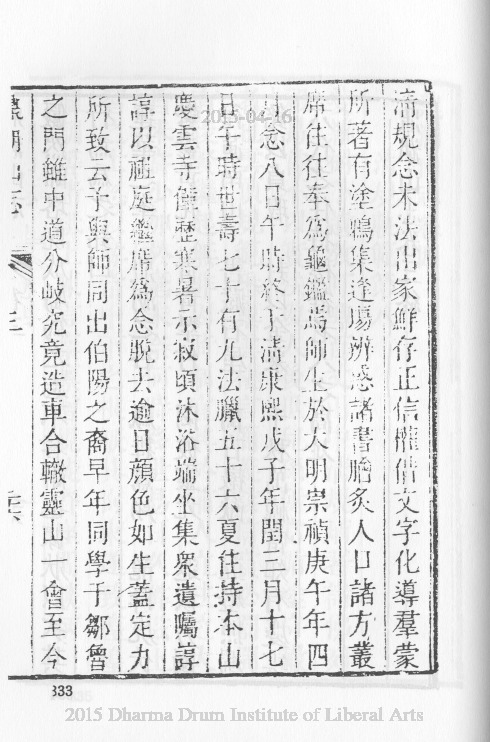 清規念末法出家鮮存正信權借文字化導羣蒙
所著有塗鴉集逢場辨惑諸書膾炙人口諸方叢
席往往奉爲龜鑑焉師生於大明崇禎庚午年四
月念八日午時終于清康熙戊子年閏三月十七
日午時世壽七十有九法臘五十六夏住持本山
慶雲寺僅歷寒暑示寂頃沐浴端坐集衆遺囑諄
諄以祖庭繼席爲念脫去逾日顏色如生蓋定力
所致云予與師同出伯陽之裔早年同學于鄒魯
之門雖中道分岐究竟造車合轍靈山一會至今
鼎湖山志
2015-04-16
333
2015 Dharma Drum Institute of Liberal Arts